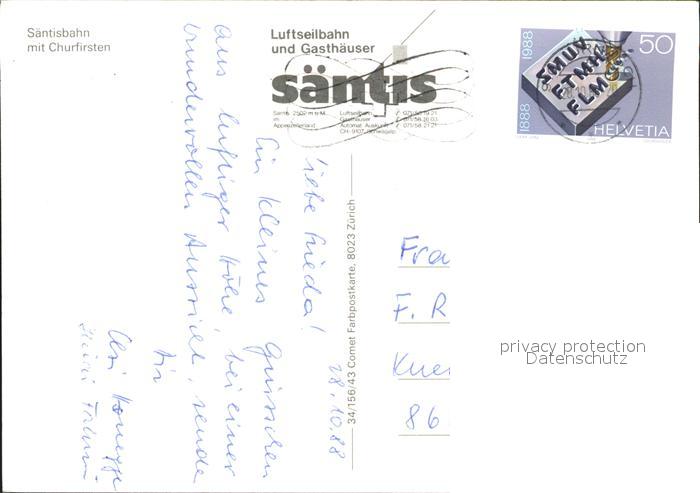 Säntisbahn
mit Churfirsten
Luftseilbahn
und Gasthäuser
säntis
Säntis 2502 m ü.M.
im
Appenzellerland
Luftseilbahn
Gasthäuser
Automat. Auskunft
CH-9107 Schwägalp
071/58 19 21
071/58 16 03
071/58 21 21
1888 1988
50
HELVETIA
34/156/43 Comet Farbpostkarte, 8023 Zürich
28.10.88
Liebe Frieda!
Ein kleines Grüsschen
aus luftiger Höhe, bei einer
wundervollen Aussicht, sende
Dir
Fra
F. R
Kue
86
privacy protection
Datenschutz